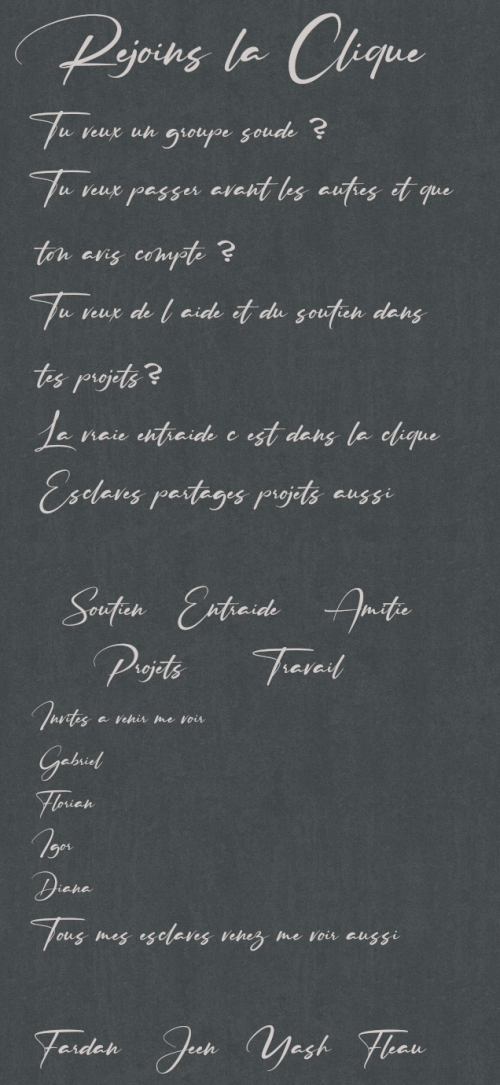 Rejoins la Clique
Tu veux un groupe soude ?
Tu veux passer avant les autres et que
ton avis compte ?
Tu veux de l aide et du soutien dans
tes projets ?
La vraie entraide c est dans la clique
Esclaves partages projets aussi
Soutien Entraide Amitie
Projets Travail
Invites a venir me voir
Gabriel
Florian
Igor
Diana
Tous mes esclaves venez me voir aussi
Fardan Jeen Yash Fleau